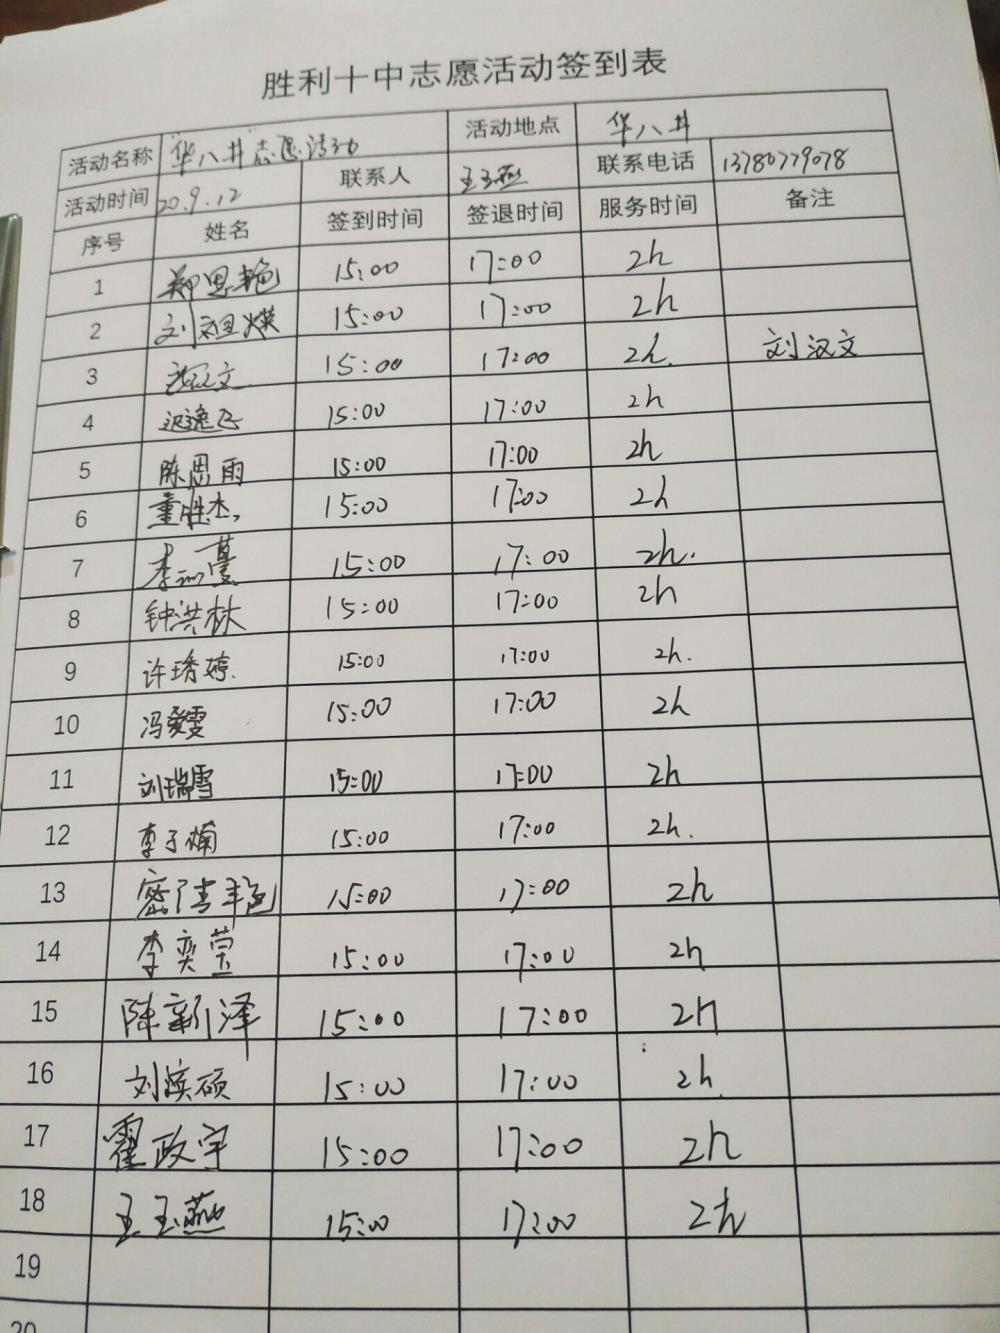 胜利十中志愿活动签到表
活动名称 "华八井"志愿活动 活动地点 华八井
活动时间 20.9.12 联系人 王玉燕 联系电话 13780779078
序号 姓名 签到时间 签退时间 服务时间 备注
1 郑思艳 15:00 17:00 2h
2 刘祖煤 15:00 17:00 2h
3 刘汉文 15:00 17:00 2h. 刘汉文
4 逸飞 15:00 17:00 2h
5 陈思雨 15:00 17:00 2h
6 董胜杰 15:00 17:00 2h
7 李 蔓 15:00 17:00 2h.
8 钟洪林 15:00 17:00 2h
9 许琇婷. 15:00 17:00 2h.
10 冯爱雯 15:00 17:00 2h
11 刘瑞雪 15:00 17:00 2h
12 李子楠 15:00 17:00 2h.
13 15:00 17:00 2h
14 李奕莹 15:00 17:00 2h
15 陈新泽 15:00 17:00 2h
16 刘滨硕 15:00 17:00 2h
17 霍政宇 15:00 17:00 2h
18 王玉燕 15:00 17:00 2h
19
20